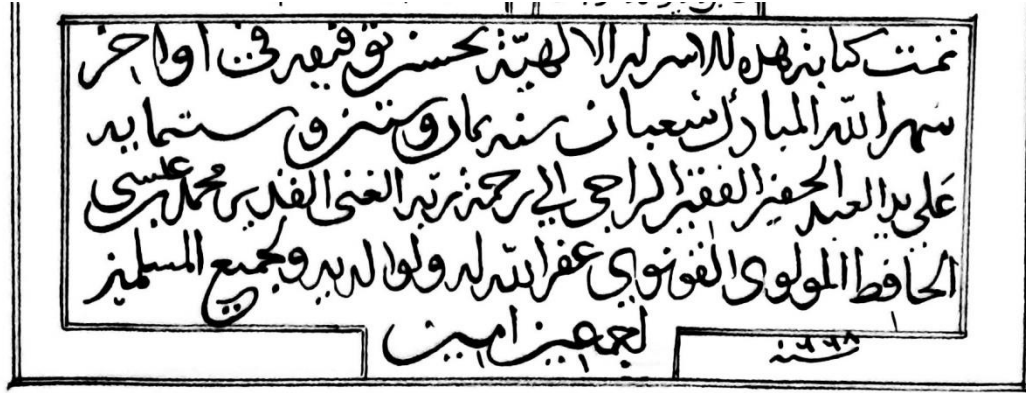 تمت كتابة هذه الاسرار الالهية بحسن توفيقه في اواخر
شهر الله المبارك شعبان سنه ثمان وستين وستمايه
على يد العبد الحقير الفقير الراجي الي رحمة ربه الغني القدير محمد بن عيسى
الحافظ المولوي القونوي غفر الله له ولوالديه ولجميع المسلمين
اجمعين امين
سنه ٦٦٨